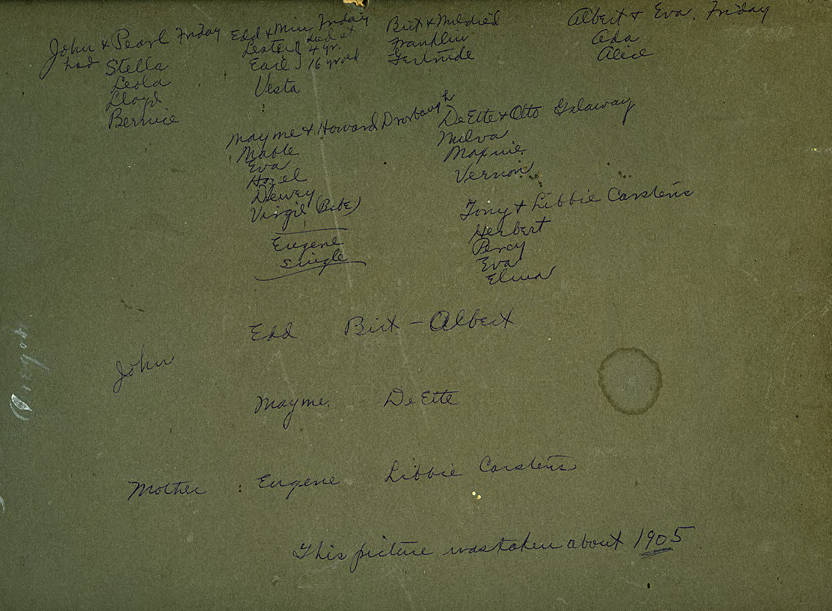 John & Pearl Friday
had Stella
Leola
Lloyd
Bernice
Edd & Min Friday
Lester died at 4 yr.
Earl 16 yr old
Vesta
Birt & Mildred
Franklin
Gertrude
Albert & Eva Friday
Ada
Alice
Mayme & Howard Drorbaugh
Mable
Eva
Hazel
Dewey
Virgil (Babe)
Eugene
single
DeEtte & Otto Galaway
Milva
Maxine
Vernon
Tony & Libbie Carstens
Herbert
Percy
Eva
Elma
Edd Birt - Albert
John
Mayme. DeEtte
Mother : Eugene Libbie Carstens
This picture was taken about 1905